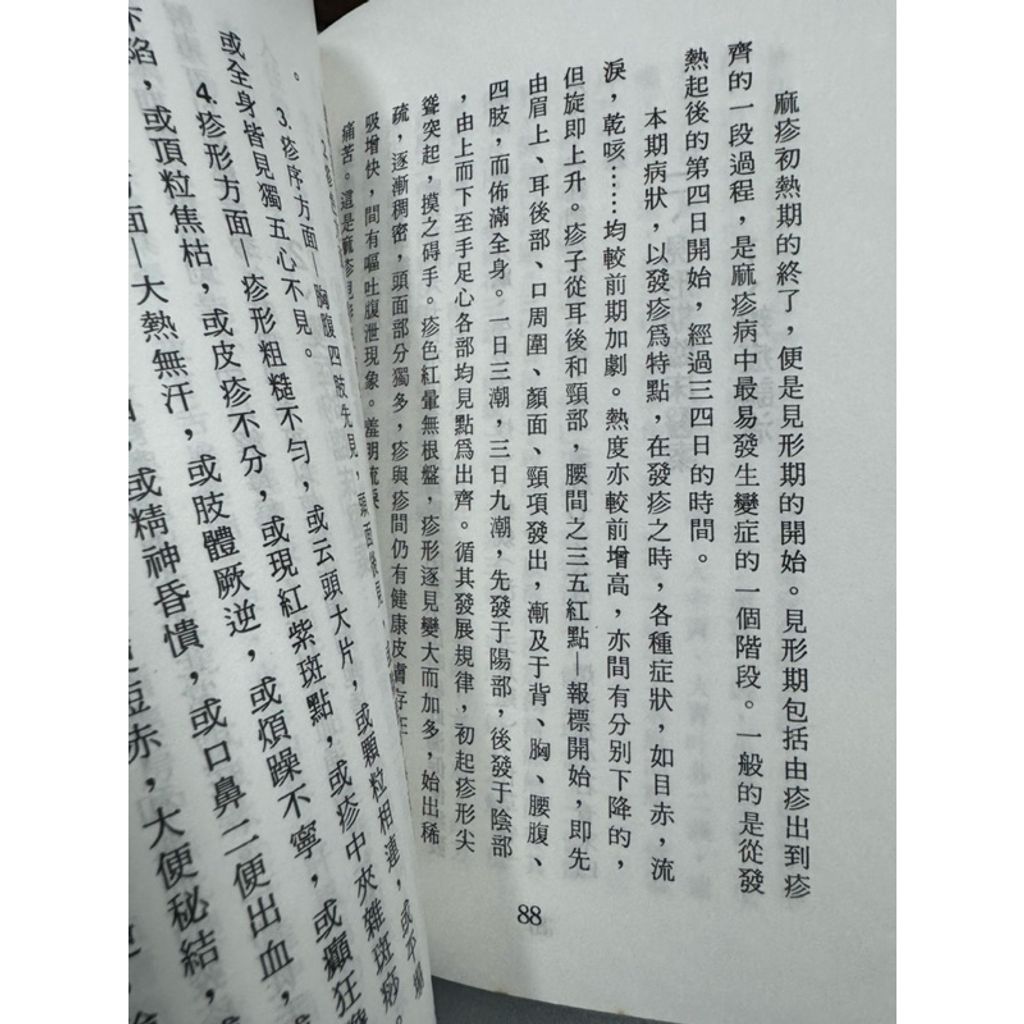 麻疹初熱期的終了，便是見形期的開始。見形期包括由疹出到疹
齊的一段過程，是麻疹病中最易發生變症的一個階段。一般的是從發
熱起後的第四日開始，經過三四日的時間。
本期病狀，以發疹爲特點，在發疹之時，各種症狀，如目赤，流
淚，乾咳……均較前期加劇。熱度亦較前增高，亦間有分別下降的，
但旋即上升。疹子從耳後和頸部，腰間之三五紅點—報標開始，即先
由眉上、耳後部、口周圍、顏面、頸項發出，漸及于背、胸、腰腹、
四肢，而佈滿全身。一日三潮，三日九潮，先發于陽部，後發于陰部
，由上而下至手足心各部均見點爲出齊。循其發展規律，初起疹形尖
聳突起，摸之碍手。疹色紅暈無根盤，疹形逐見變大而加多，始出稀
疏，逐漸稠密，頭面部分獨多，疹與疹間仍有健康皮膚存在
吸增快，間有嘔吐腹泄現象。羞明流淚
痛苦。這是麻疹見形
88
3.疹序方面—胸腹四肢先見，頭面
。
或全身皆見獨五心不見。
4.疹形方面—疹形粗糙不匀，或云頭大片，或顆粒相連，或平塌
下陷，或頂粒焦枯，或皮疹不分，或現紅紫斑點，或疹中夾雜斑痧。
面—大熱無汗，或肢體厥逆，或煩躁不寧，或癲狂
或精神昏憒，或口鼻二便出血，
短赤，大便秘結，